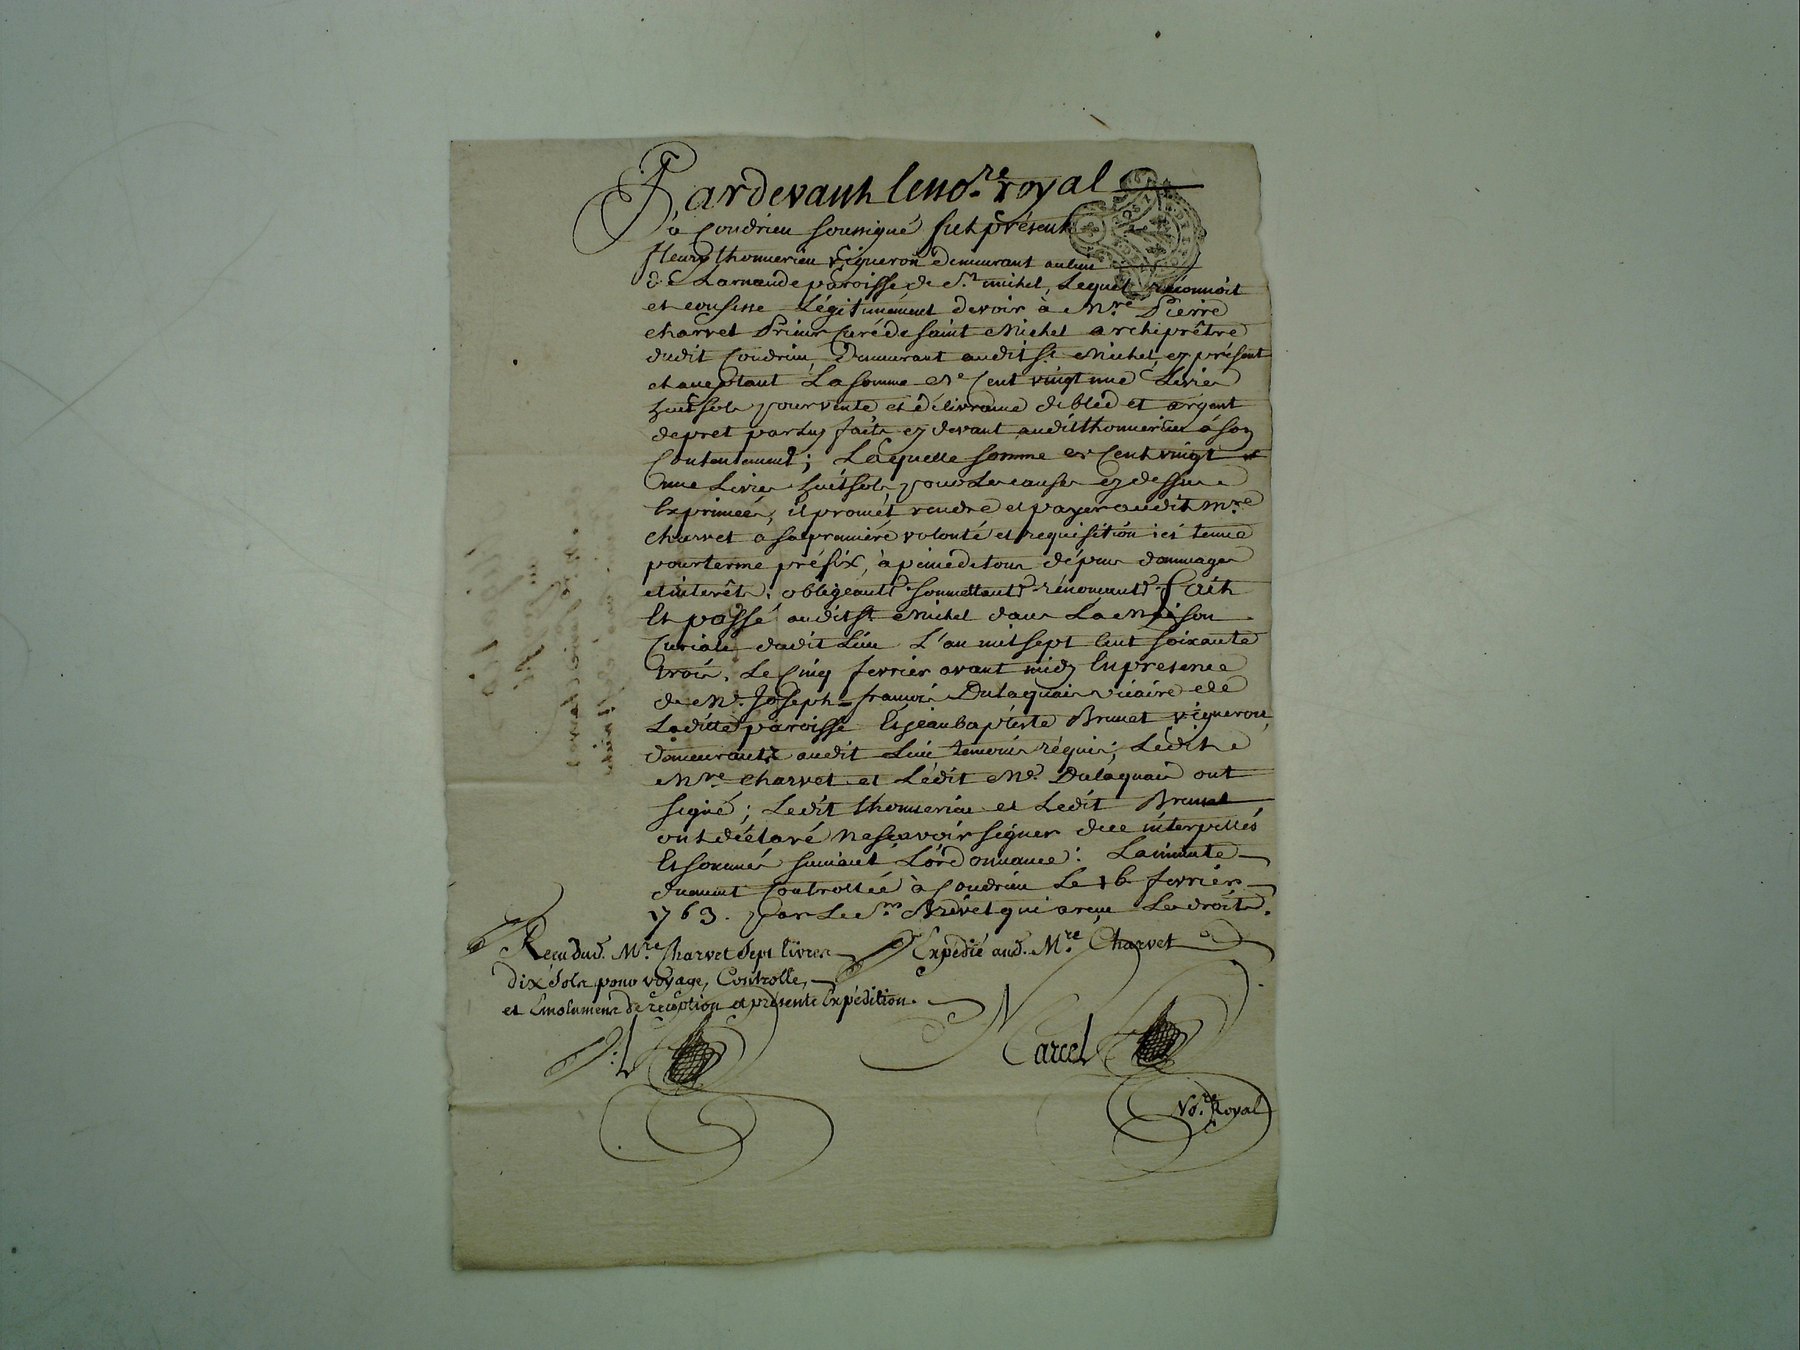 Pardevant le no.re royal
à Condrieu soussigné fut présent
fleury thonnerieu vigneron demeurant au lieu
de Larnaude paroisse de St. michel, Lequel reconnoit
et confesse Légitimement devoir à Mre. Pierre
charvet Prieur Curé de saint Michel archiprêtre
dudit Condrieu Demeurant audit St. Michel, cy présent
et acceptant La somme de Cent vingt une Livres
huit sols pour vente et délivrance de bled et argent
de pret par luy faits cy devant audit thonnerieu à son
Contentement; Laquelle somme de Cent vingt
une Livres huit sols pour Les causes cy dessus
Exprimées, il promet rendre et payer audit Mre.
charvet a sa première volonté et requisition ici tenue
pour terme préfix, à peine de tous dépens dommages
et interêts; obligeants soumettants rénonceants fait
Et passé audit St. Michel dans La Maison
Curiale dudit Lieu L'an mil sept cent soixante
trois, Le Cinq fevrier avant midy En presence
de Me. Joseph-françois Dulaquais vicaire de
Laditte paroisse Et jean baptiste Brunet vigneron
demeurants audit Lieu temoins réquis; Ledit
Mre charvet et Ledit Me. Dulaquais ont
signé; Ledit thonnerieu et Ledit Brunet
ont déclaré ne scavoir signer de ce interpellés
Et sommés suivant L'ordonnance: La minute
duement Controllée à Condrieu Le 16 fevrier
1763. par Le Sr. qui a reçu Les droits.
Reçu dud. Mre. Charvet Sept livres
dix sols pour voyage, Controlle,
et Emolument de réception et présente Expédition.
Expédié aud. Mre. Charvet
Carcel
No.re Royal